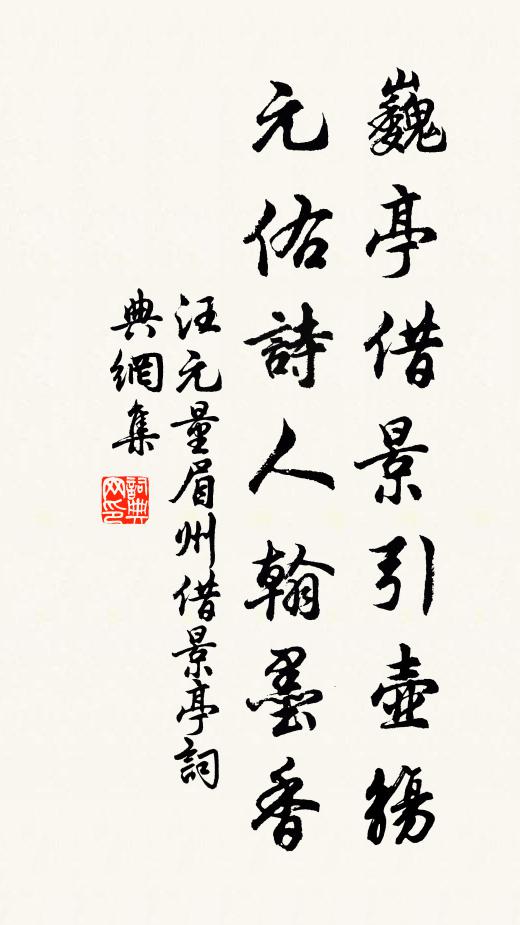 巍亭借景引壺觴
元佑詩人翰墨香
汪元量眉州借景亭詞
典網集
詞典
网印